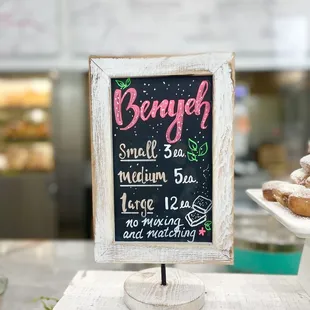 Benyeh
Small 3ea
medium 5ea
large 12ea
no mixing
and matching